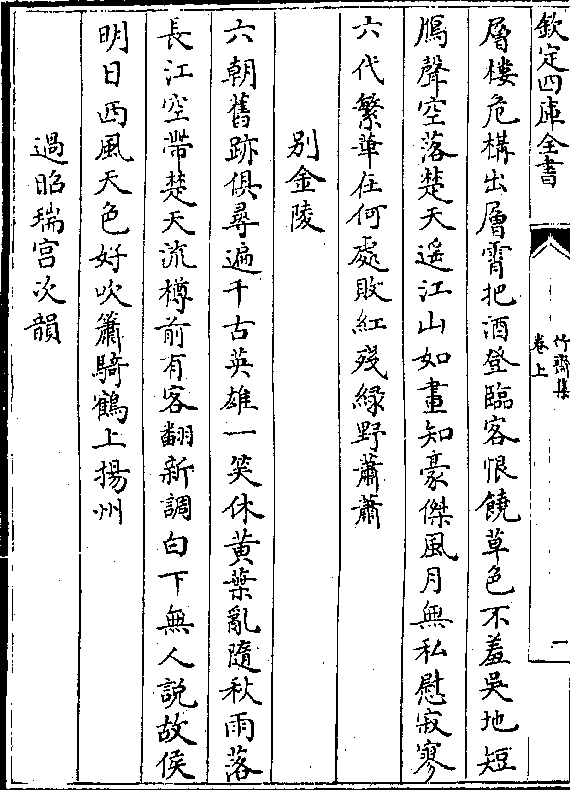 欽定四庫全書
竹齋集
卷上
一
層樓危構出層霄把酒登臨客恨饒草色不羞吳地短
鴈聲空落楚天遥江山如畫知豪傑風月無私慰寂寥
六代繁華在何處敗紅殘綠野蕭蕭
別金陵
六朝舊跡俱尋遍千古英雄一笑休黄葉亂隨秋雨落
長江空帶楚天流樽前有客翻新調白下無人説故侯
明日西風天色好吹簫騎鶴上揚州
過昭瑞宫次韻